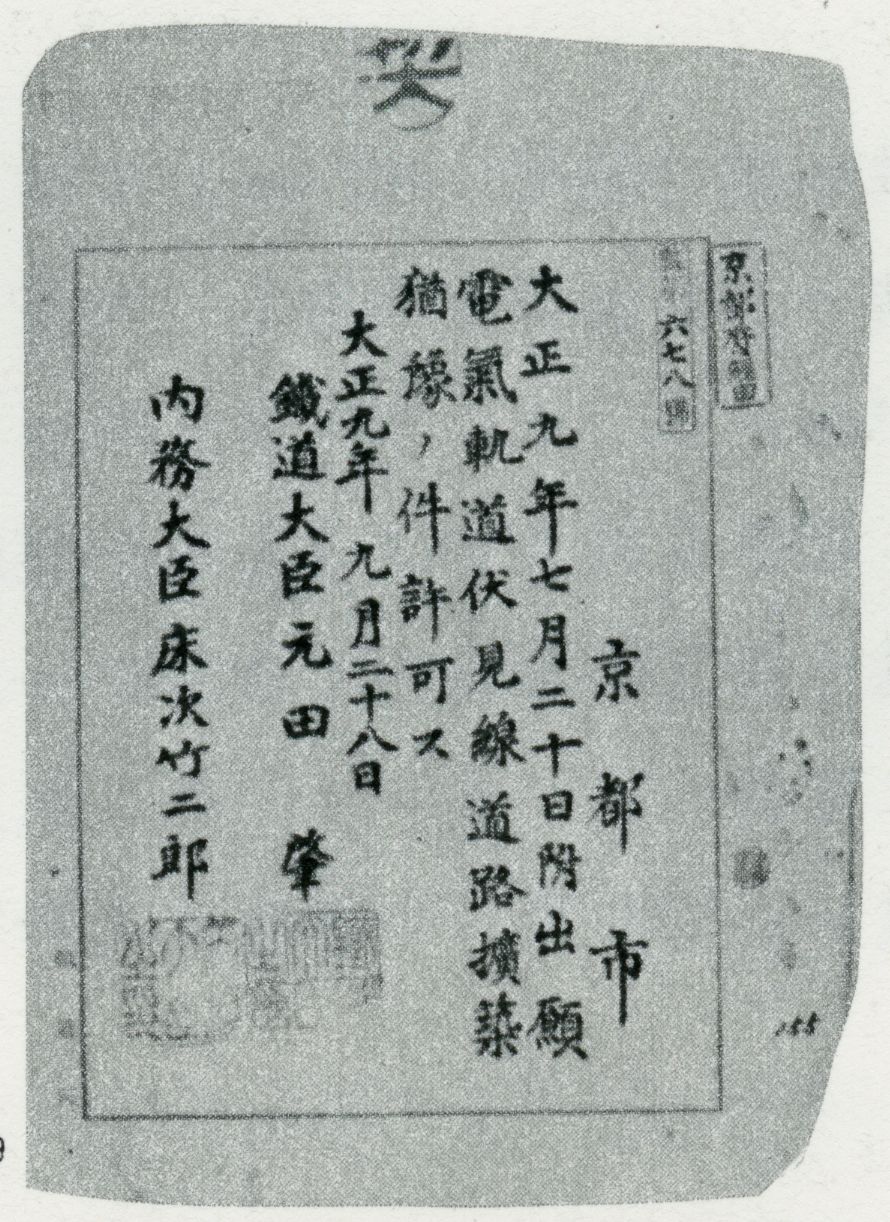 京都府經由
六七八號
京都市
大正九年七月二十日附出願
電氣軌道伏見線道路擴築
猶豫ノ件許可ス
大正九年九月二十八日
鐵道大臣元田肇
内務大臣床次竹二郎
155
9